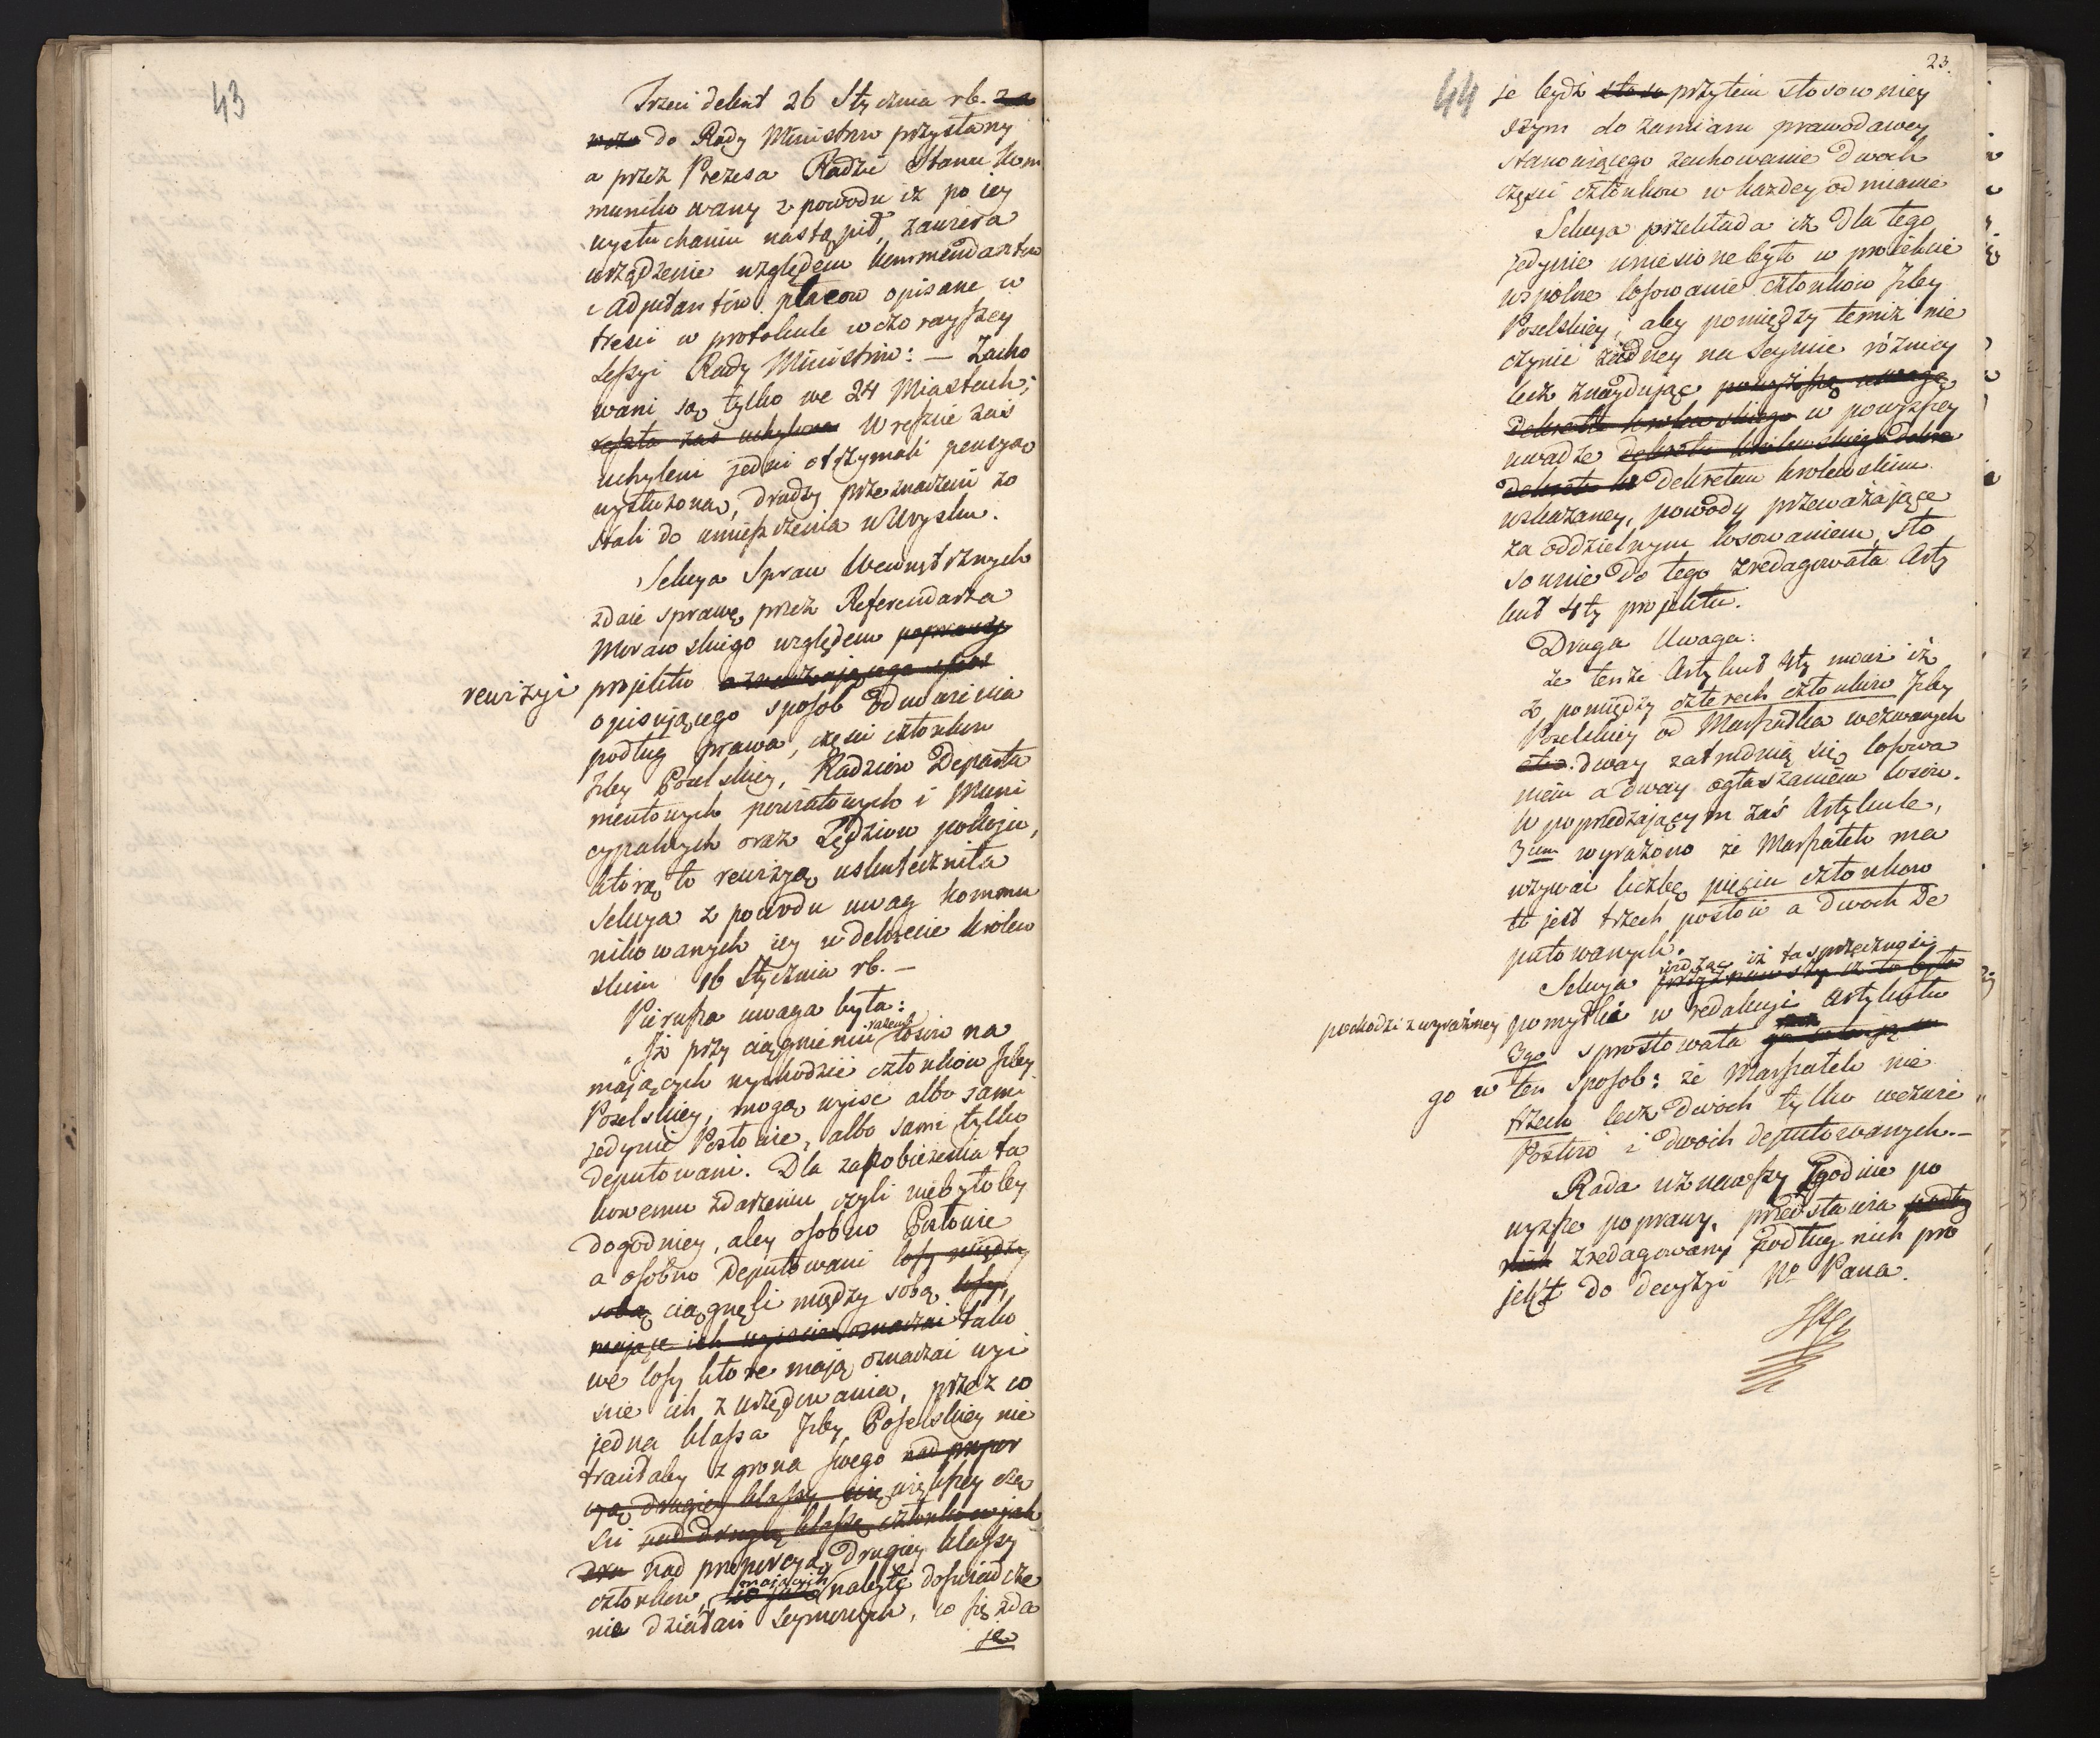 43
Trzeci dekret 26 Stycznia rb.
do Rady Ministrow przysłany
a przez Prezesa Radzie Stanu kom
munikowany z powodu iż po iey
wysłuchaniu nastąpił, zawiera
urządzenie względem kommendantow
i Adjutantów placow opisane w
treści w protokule wczorayszey
Sessyi Rady Ministrów: — Zacho
wani są tylko we 24 Miastach;
reszta zas uchylona W reszcie zaś
uchyleni jedni otrzymali pensyą
wysłużoną, drudzy przeznaczeni zo
stali do umieszczenia w Woysku.
Sekcya Spraw Wewnętrznych
zdaie sprawę przez Referendarza
Morawskiego względem poprawy
rewizyi projektu oznaczającego spos
opisującego sposob odnowienia
podług prawa, części członkow
Izby Poselskiey, Radzców Departa
mentowych powiatowych i Muni
cypalnych oraz Sędziow pokoju,
którą to rewizyą uskuteczniła
Sekcya z powodu uwag kommu
nikowanych iey w dekrecie królew
skim 16 Stycznia rb. —
Pierwsza uwaga była:
razem
„Iż przy ciągnieniu losów na
mających wychodzić członków Izby
Poselskiey, mogą wyiść albo sami
jedynie Posłowie, albo sami tylko
deputowani. Dla zapobieżenia ta
kowemu zdarzeniu czyli niebyłoby
dogodniey, aby osobno Posłowie
a osobno Deputowani losy między
sobą ciągnęli między sobą losy,
mające ich wyiście oznaczać tako
we losy które mają oznaczać wyi
ście ich z urzędowania, przez co
jedna klassa Izby Poselskiey nie
traciłaby z grona swego nad propor
cyą drugiey klassy większey czę
ści nad drugą klassę członkow jak
nad proporcyą drugiey klassy
mających
członków, należyte doświadcze
nie działań seymowych, co się zda
je
44
23.
je bydź przytem stosowniey
szym do zamiaru prawodawcy
stanowiącego zachowanie dwoch
części członkow w każdey odmianie
Sekcya przekłada iż dla tego
jedynie umieszczone było w projekcie
wspólne losowanie członkow Izby
Poselskiey, aby pomiędzy temiż nie
czynić żadney na Seymie różnicy
lecz znaydując powyższą uwagę
dekretu krolewskiego w powyższey
uwadze dekretu krolewskiego
dekretem krolewskim
wskazaney, powody przeważające
za oddzielnym losowaniem, sto
sownie do tego zredagowała Arty
kuł 4ty projektu.
Druga Uwaga:
że tenże Artykuł 4ty mówi iż
z pomiędzy czterech członków Izby
Poselskiey od Marszałka wezwanych
dway zatrudnią się losowa
niem a dway ogłaszaniem losów.
W poprzedzającym zaś Artykule,
3cim wyrażono że Marszałek ma
wzywać liczbę pięciu członkow
to jest trzech posłów a dwoch De
putowanych.
widząc iż ta sprzeczność
Sekcya przyznawszy iż to była
pochodzi z wyraźney pomyłki w redakcyi Artykułu
3go sprostowała
go w ten sposob: że Marszałek nie
trzech lecz dwóch tylko wezwie
Posłów i dwóch deputowanych. —
Rada uznawszy zgodnie po
wyższe poprawy, przedstawia podług
nich zredagowany podług nich pro
jekt do decyzyi Nº Pana.